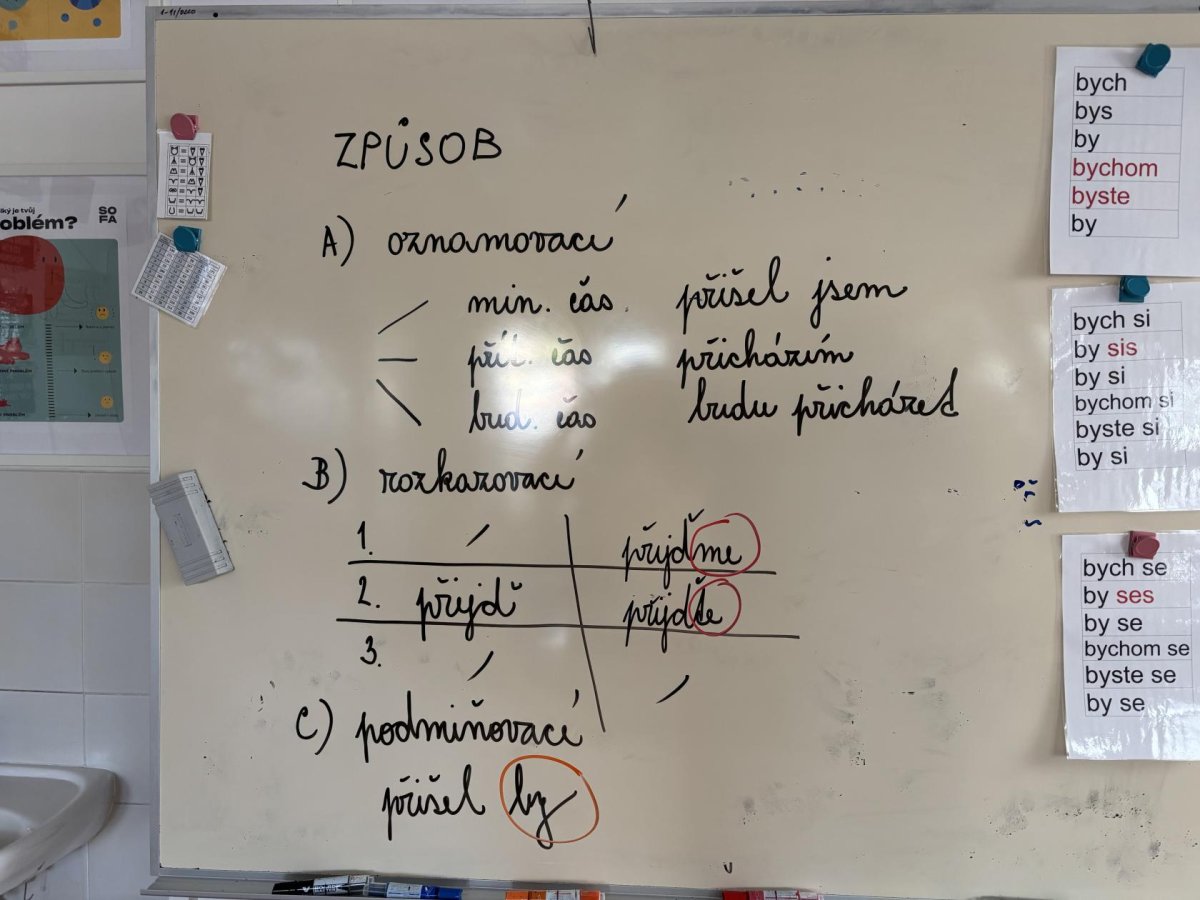 1-11/2020
ZPŮSOB
A) oznamovací
min. čas přišel jsem
přít. čas přicházím
bud. čas budu přicházet
B) rozkazovací
1. přijďme
2. přijď přijďte
3.
C) podmiňovací
přišel by
bych
bys
by
bychom
byste
by
bych si
by sis
by si
bychom si
byste si
by si
bych se
by ses
by se
bychom se
byste se
by se
lký je tvůj
oblém?
SO
FA